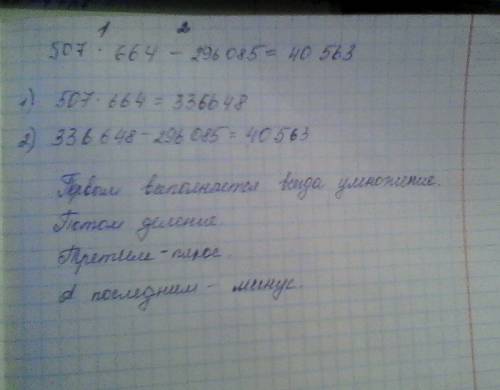 1 2
507 · 664 - 296 085 = 40 563
1) 507 · 664 = 336648
2) 336 648 - 296 085 = 40 563
Первым выполнается всегда умножение.
Потом деление.
Третьем - плюс.
А последним - минус.